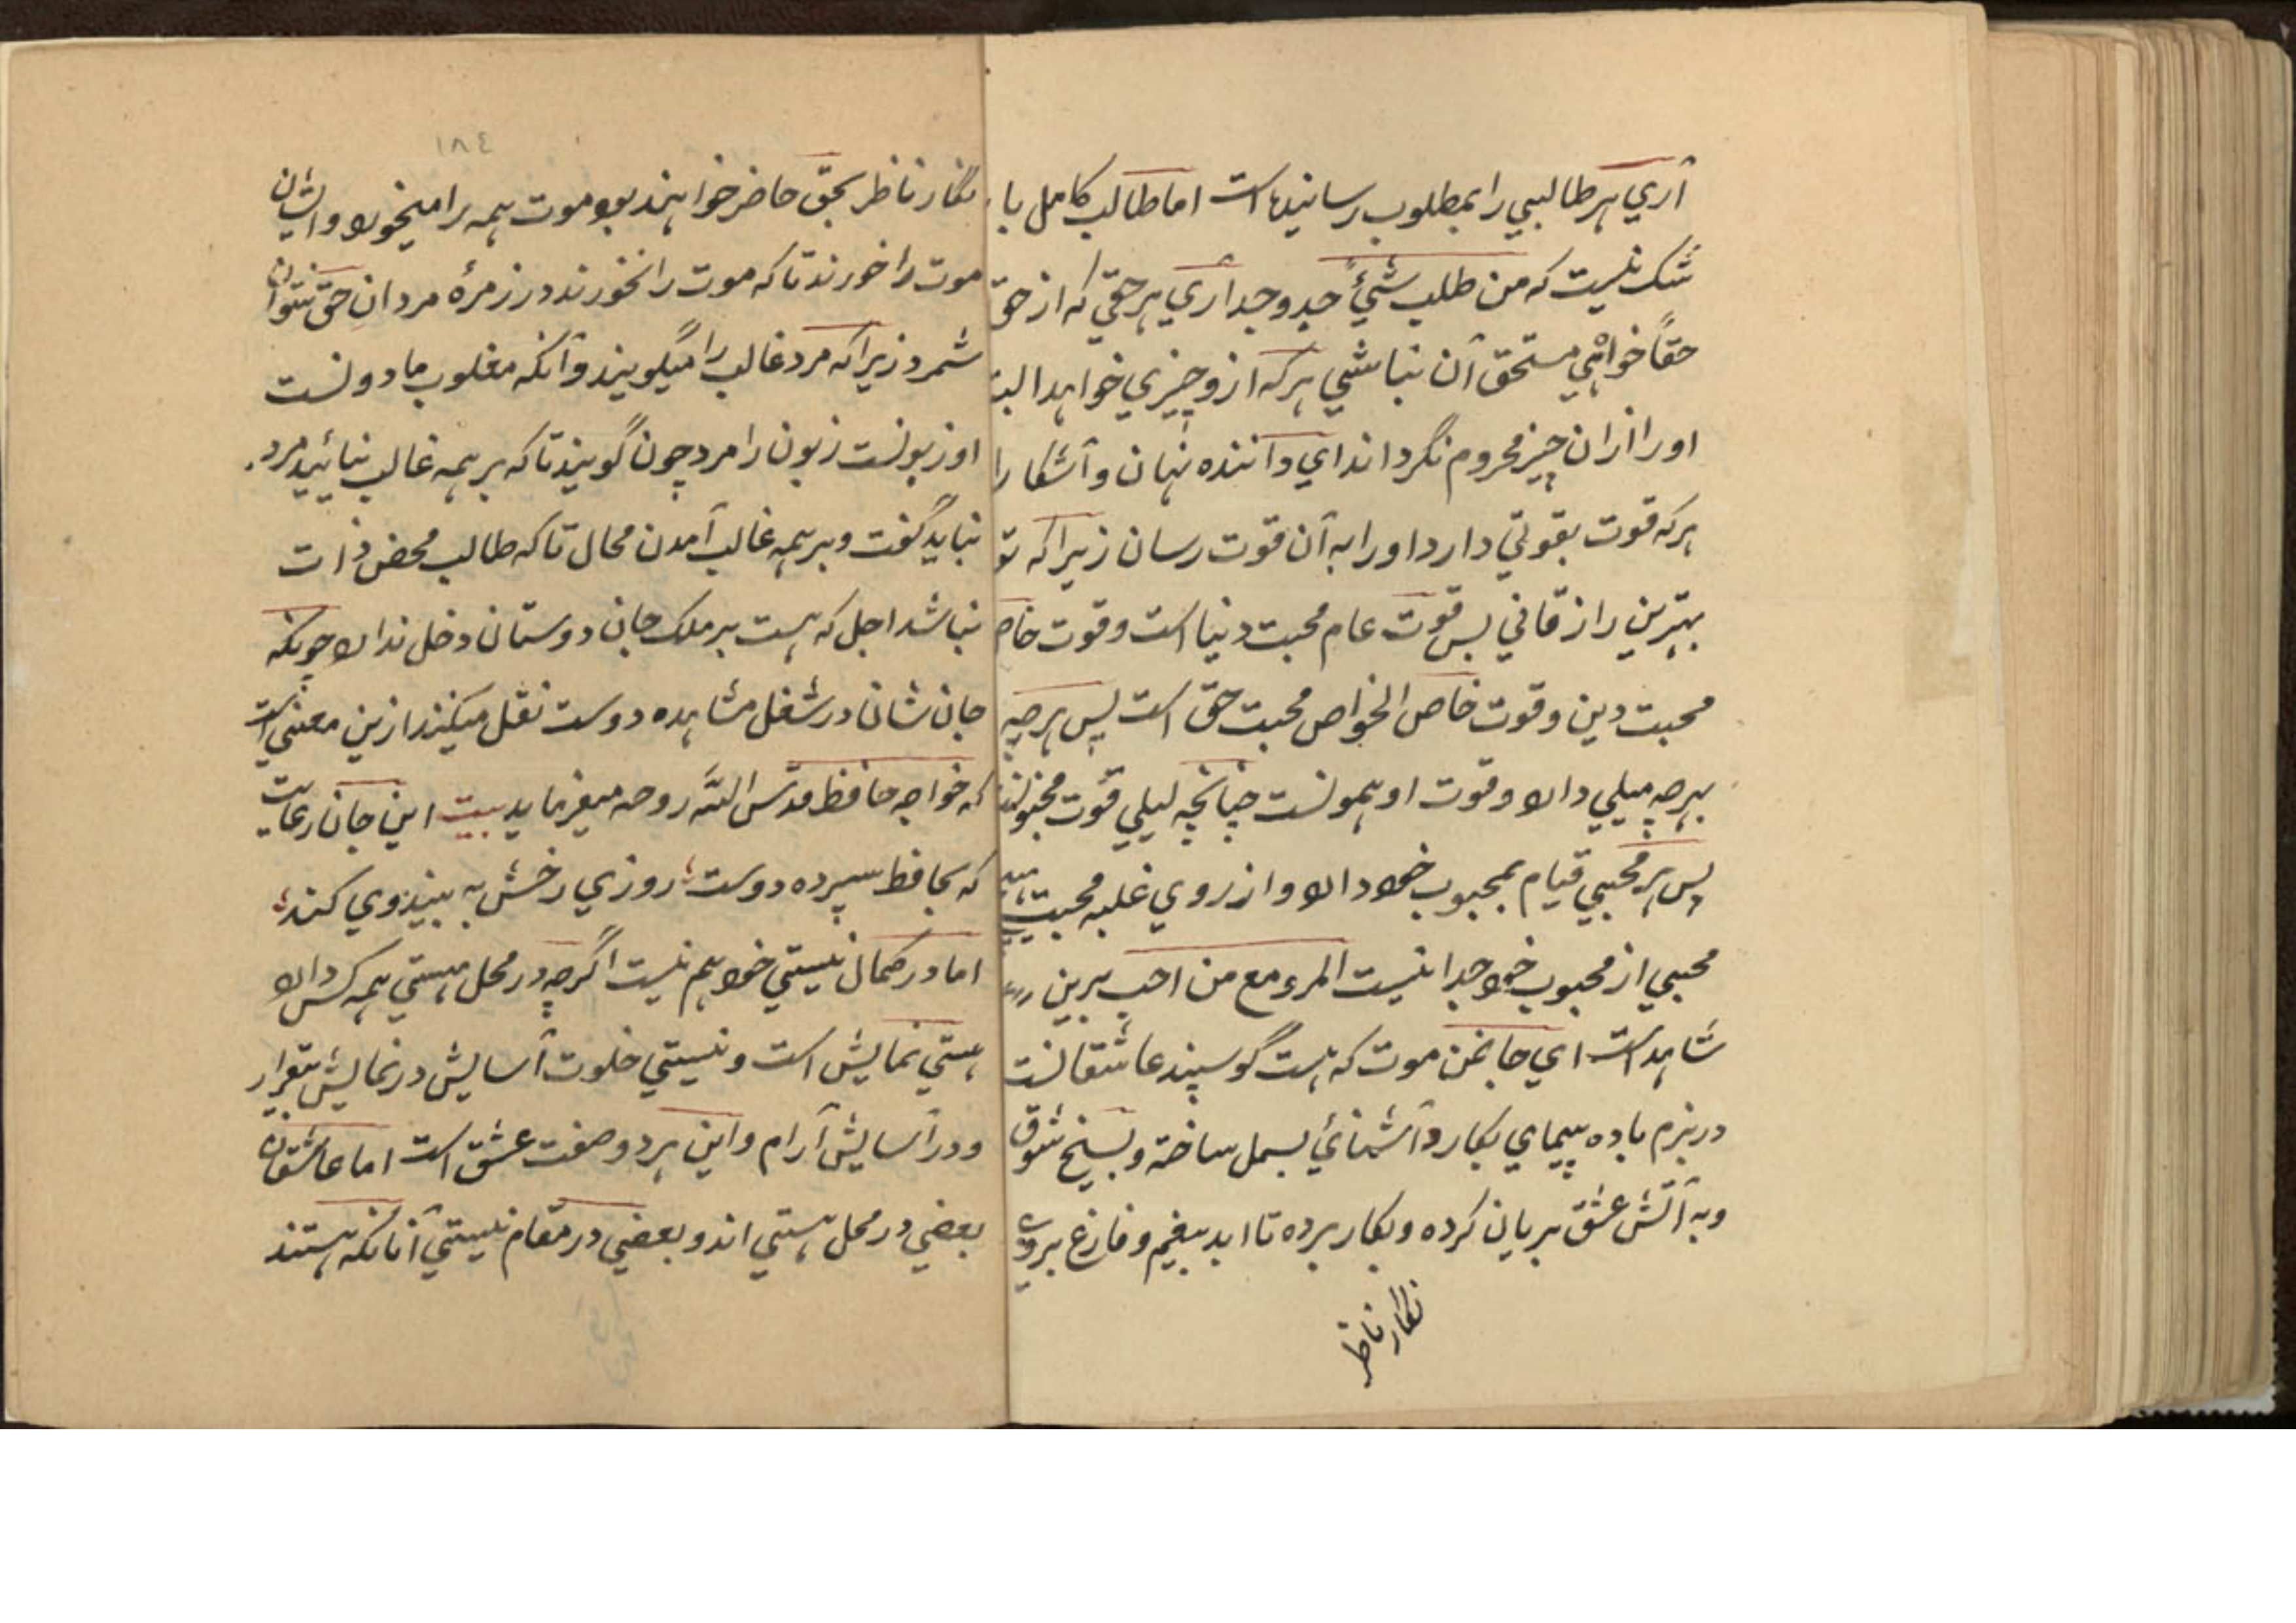 آري هر طالبي را بمطلوب رسانيده است اما طالب كامل بايد
شك نيست كه من طلب شيئًا جد وجد آري هر حقي كه از حق
حقًا خواهي مستحق آن نباشي هر كه ازو چيزي خواهد البته
اورا ازان چيز محروم نگرداند اي داننده نهان و آشكارا
هر كه قوت بقوتي دارد اورا به آن قوت رسان زيرا كه تو
بهترين رازقاني پس قوت عام محبت دنيا است و قوت خاص
محبت دين و قوت خاص الخواص محبت حق است پس هر چه
بهر چه ميلي دارد قوت او همونست چنانچه ليلي قوت مجنونست
پس هر محبي قيام بمحبوب خود دارد و از روي غلبه محبت
محبي از محبوب خود جدا نيست المرء مع من احب برين
شاهد است اي جانمن موت كه هست گوسپند عاشقانست
در بزم باده پيماي بكارد آشنائي بسمل ساخته و بسيخ شوق
و به آتش عشق بريان كرده و بكار برده تا ابد بيغم و فارغ بروي
نگار ناظر
١٨٤
نگار ناظر بحق حاضر خواهند بود موت همه را ميخورد و ايشان
موت را خورند تا كه موت را نخورند در زمرهٔ مردان حق نتوان
شمرد زيرا كه مرد غالب را ميگويند و آنكه مغلوب مادونست
او زبونست زبون را مرد چون گويند تا كه بر همه غالب نيائيد مرد
نبايد گفت و بر همه غالب آمدن محال تا كه طالب محض ذات
نباشد اجل كه هست بر ملك جان دوستان دخل ندارد چونكه
جان شان در شغل مشاهده دوست نقل ميكند ازين معني است
كه خواجه حافظ قدس الله روحه ميفرمايد بيت اين جان عاريت
كه بحافظ سپرده دوست؛ روزي رخش به بينم و تسليم وي كنم؛
اما در كمال نيستي خود هم نيست اگر چه در محل هستي همه كس دارد
هستي نمايش است و نيستي خلوت آسايش در نمايش بيقرار
و در آسايش آرام و اين هر دو صفت عشق است اما عاشقان
بعضي در محل هستي اند و بعضي در مقام نيستي آنانكه هستند